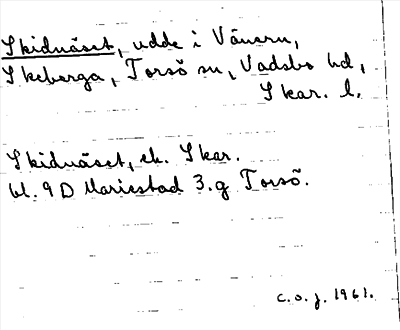 Skidnäset, udde i Vänern,
Skeberga, Torsö sn, Vadsbo hd,
Skar. l.
Skidnäset, ek. Skar.
bl. 9D Mariestad 3.g Torsö.
c.o.j. 1961.